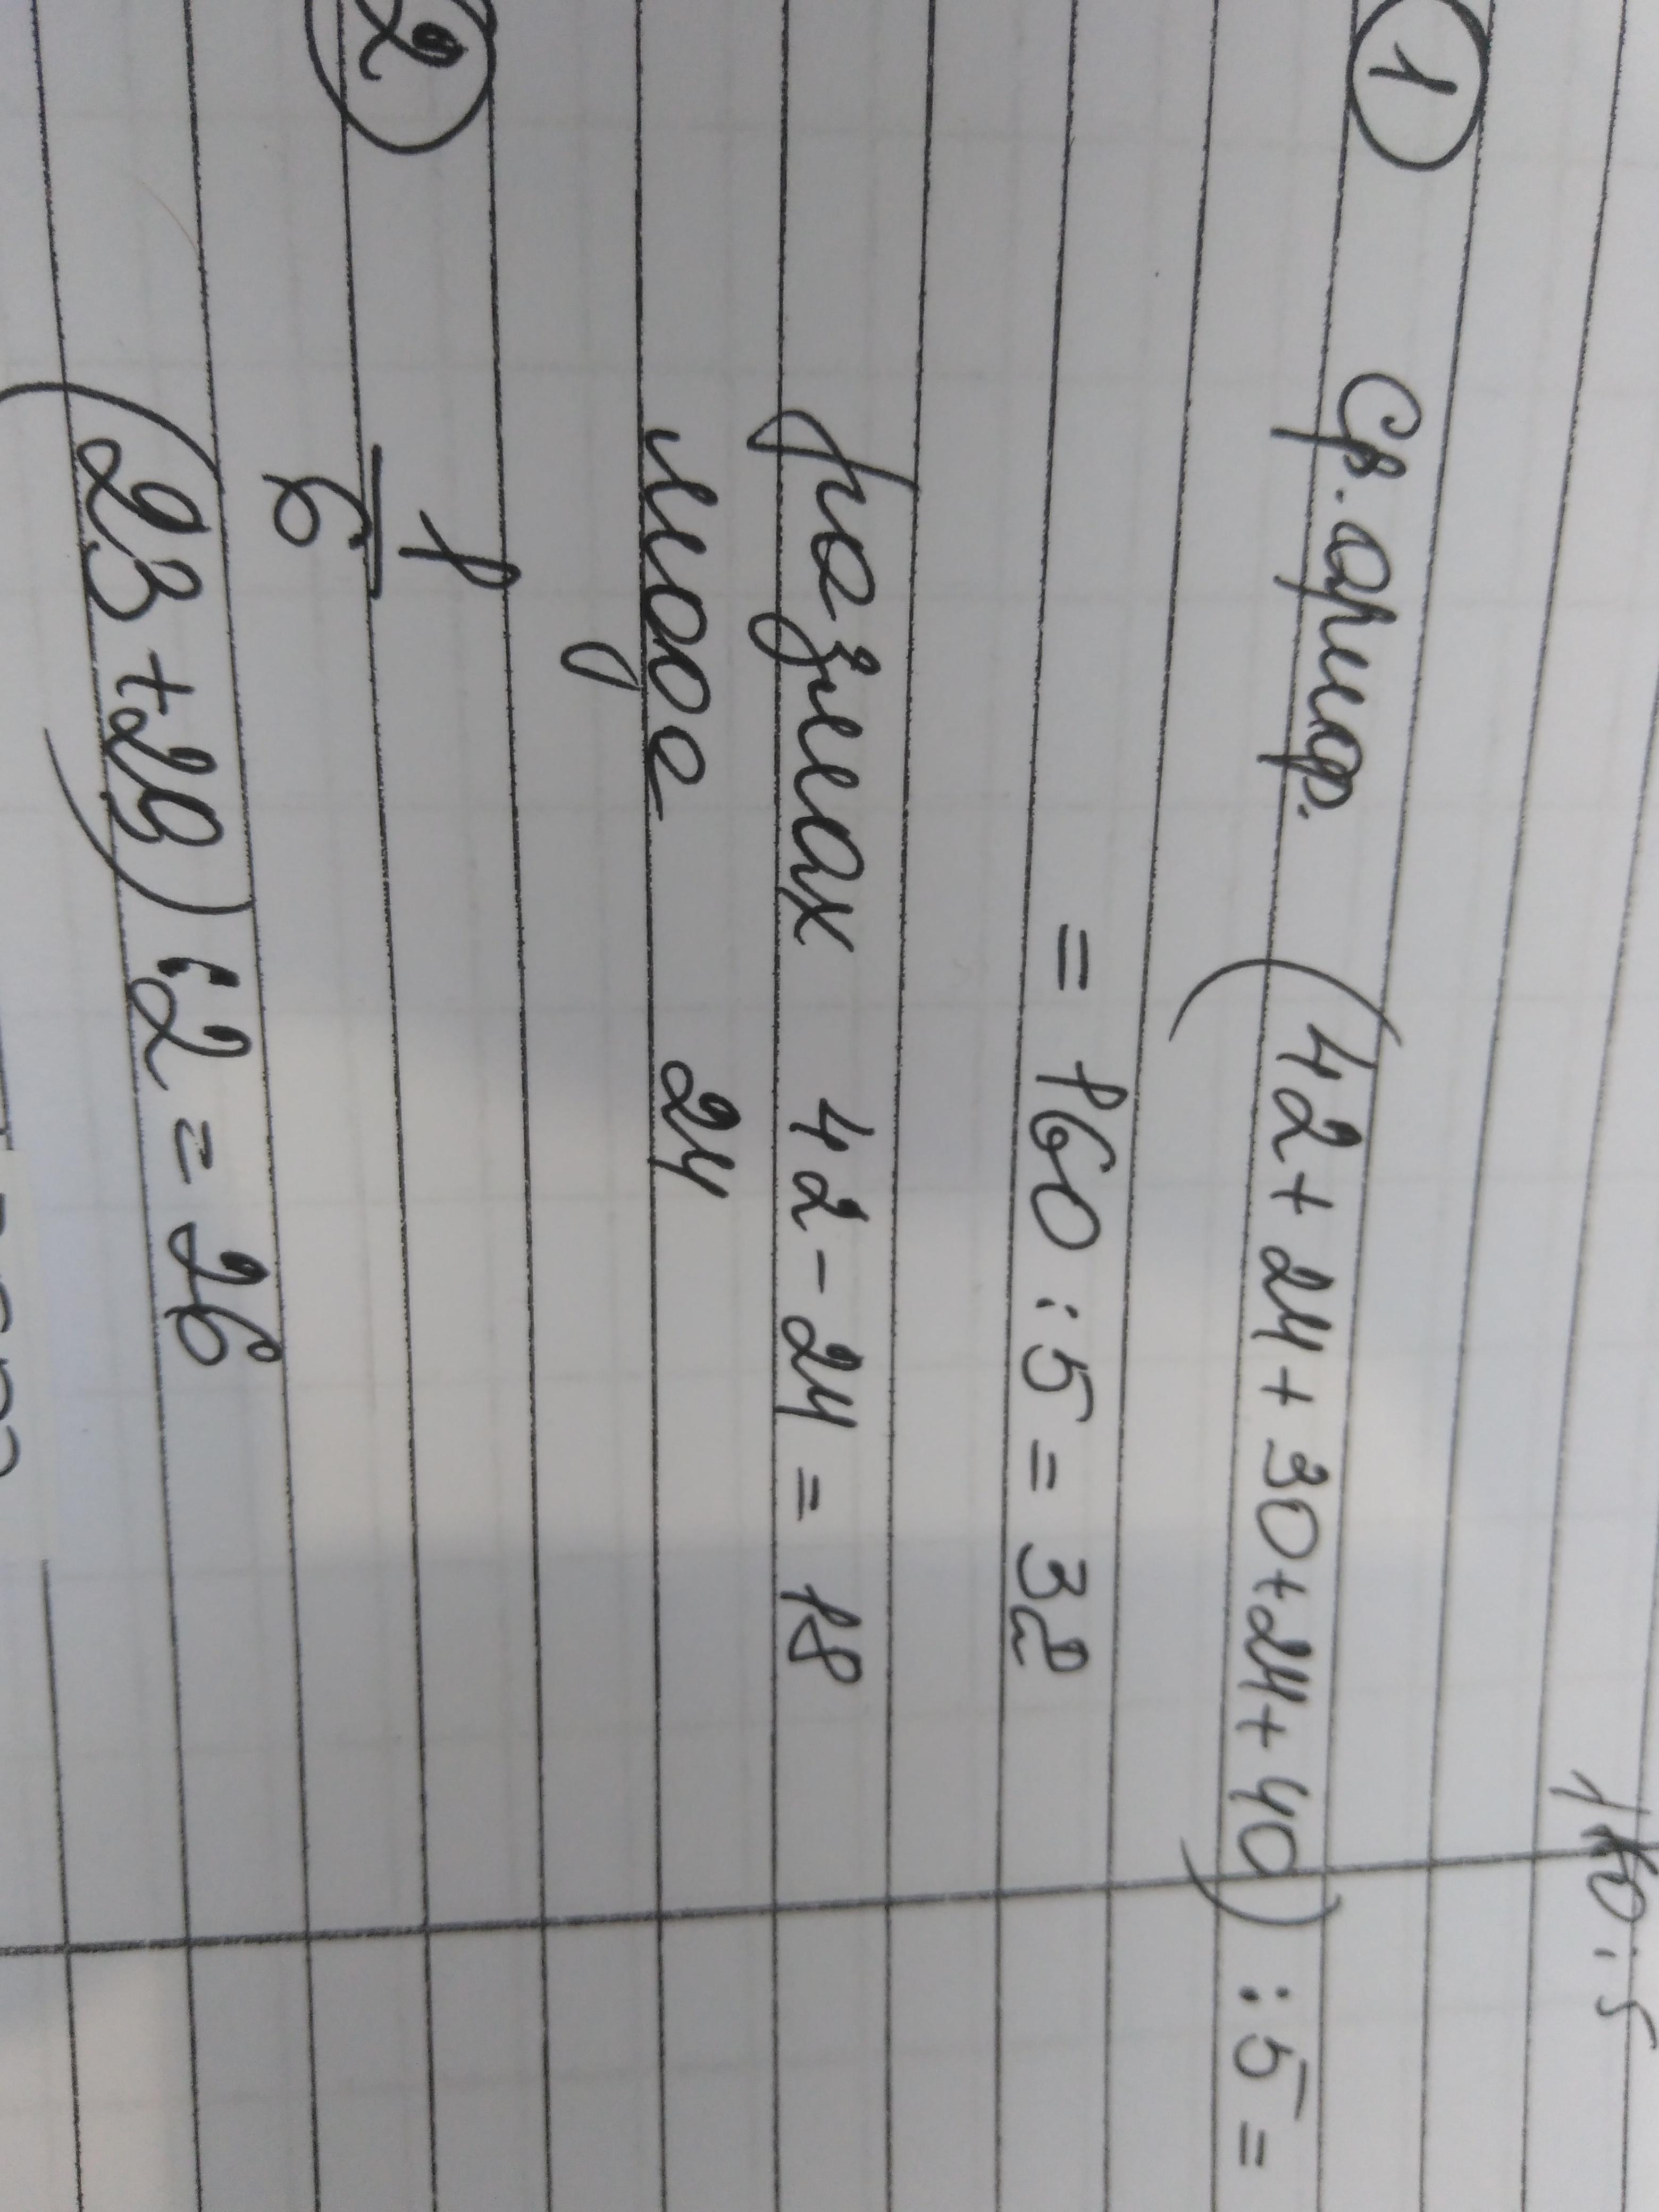 110:5
1 Ср. ариф. (42+24+30+24+40):5=
=160:5=32
размах 42-24=18
мода 24
2 1
6
(23+29):2=26